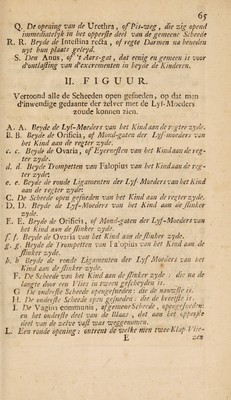 65
Q. De opening van de Urethra, of Pis-weg, die zig opend
immediatelyk in het opperste deel van de gemeene Scheede
R. R. Beyde de Intestina recta, of regte Darmen na beneden
uyt hun plaats geleyd.
S. Den Anus, of 't Aars-gat, dat eenig en gemeen is voor
d'ontlasting van d'excrementen in beyde de Kinderen.
II. FIGUUR.
Vertoond alle de Scheeden open gesneden, op dat men
d'inwendige gedaante der zelver met de Lyf-Moeders
zoude konnen zien.
A. A. Beyde de Lyf-Moeders van het Kind aan de regter zyde.
B. B. Beyde de Orificia, of Mond-gaten der Lyf-moeders van
het Kind aan de regter zyde.
c. c. Beyde de Ovaria, of Eyernesten van het Kind aan de reg-
ter zyde;
d. d. Beyde de Trompetten van Falopius van het Kind aan de reg-
ter zyde:
e. e. Beyde de ronde Ligamenten der Lyf-Moeders van het Kind
aan de regter zyde:
C. De Scheede open gesneden van het Kind aan de regter zyde.
D. D. Beyde de Lyf-Moeders van het Kind aan de slinker
zyde.
E. E. Beyde de Orificia, of Mond-gaten der Lyf-Moeders van
het Kind aan de slinker zyde.
f. f. Beyde de Ovaria van het Kind aan de slinker zyde.
g. g. Beyde de Trompetten van Falopius van het Kind aan de
slinker zyde.
h. h Beyde de ronde Ligamenten der Lyf Moeders van het
Kind aan de slinker zyde.
F. De Scheede van het Kind aan de slinker zyde: die na de
langte door een Vlies in tween gescheyden is.
G De onderste Scheede opengesneden: die de nauwste is.
H. De onderste Scheede open gesneden: die de breetste is.
I. De Vagina communis, of gemeene Scheede, opengesneden:
en het onderste deel van de Blaas, dat aan het opperste
deel van de zelve vast was weggenomen.
L. Een ronde opening: ontrent de welke men twee Klap Vlie-
E
zen